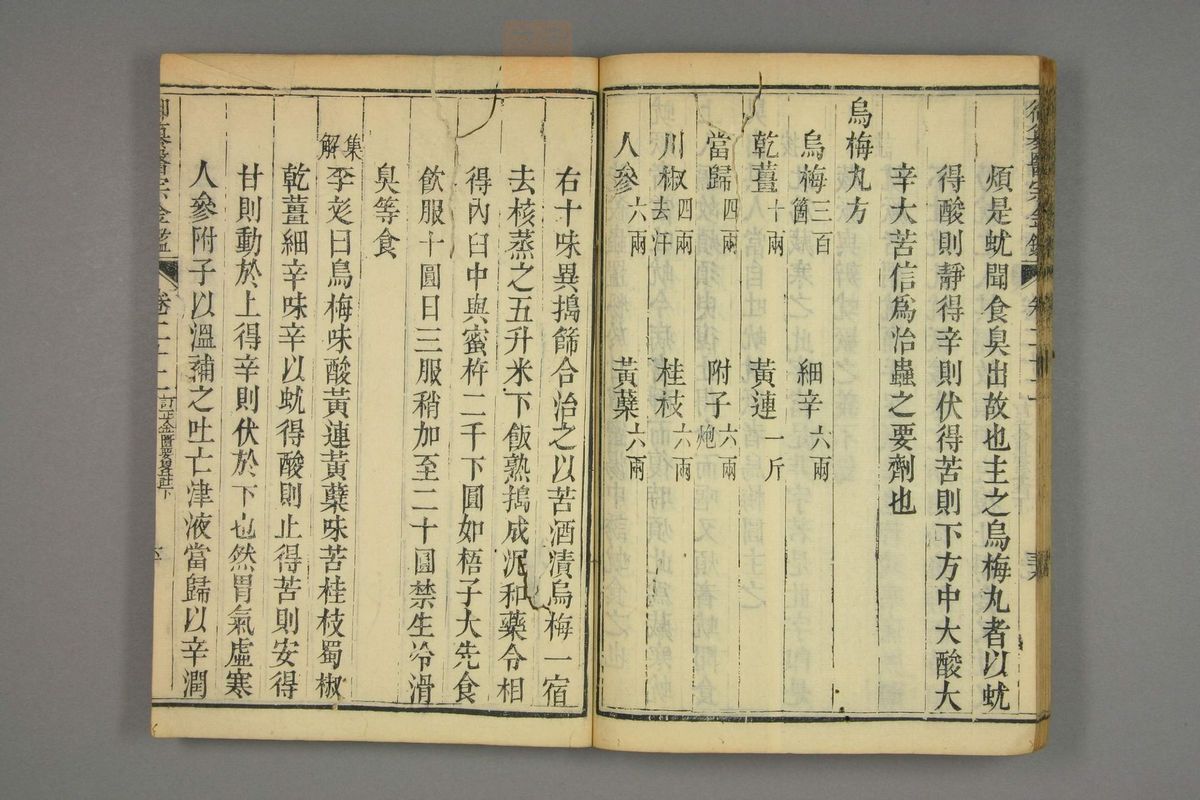 煩是蚘聞食臭出故也主之烏梅丸者以蚘
得酸則靜得辛則伏得苦則下方中大酸大
辛大苦信爲治蟲之要劑也
烏梅丸方
烏梅三百箇 細辛六兩
乾薑十兩 黃連一斤
當歸四兩 附子六兩炮
川椒四兩去汗 桂枝六兩
人參六兩 黃蘗六兩
右十味異搗篩合治之以苦酒漬烏梅一宿
去核蒸之五升米下飯熟搗成泥和藥令相
得內臼中與蜜杵二千下圓如梧子大先食
飲服十圓日三服稍加至二十圓禁生冷滑
臭等食
集解李彣曰烏梅味酸黃連黃蘗味苦桂枝蜀椒
乾薑細辛味辛以蚘得酸則止得苦則安得
甘則動於上得辛則伏於下也然胃氣虛寒
人參附子以溫補之吐亡津液當歸以辛潤